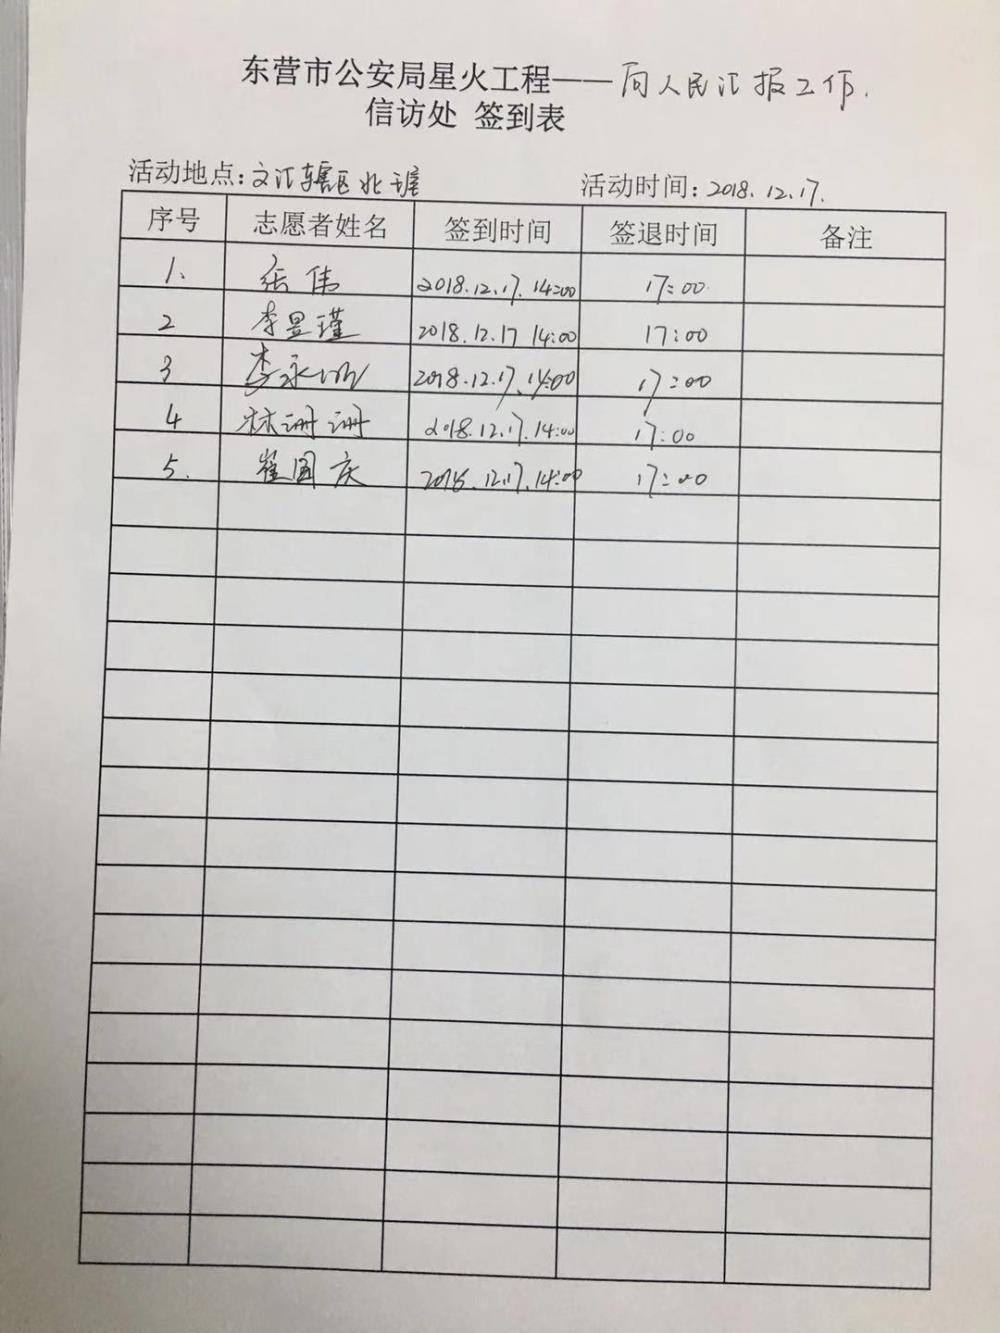 东营市公安局星火工程——向人民汇报工作.
信访处 签到表
活动地点:文汇辖区北 活动时间:2018.12.17.
序号 志愿者姓名 签到时间 签退时间 备注
1. 张伟 2018.12.17.14:00 17:00
2 李昱瑾 2018.12.17 14:00 17:00
3 李永 2018.12.17.14:00 17:00
4 林珊珊 2018.12.17.14:00 17:00
5. 崔国庆 2018.12.17.14:00 17:00